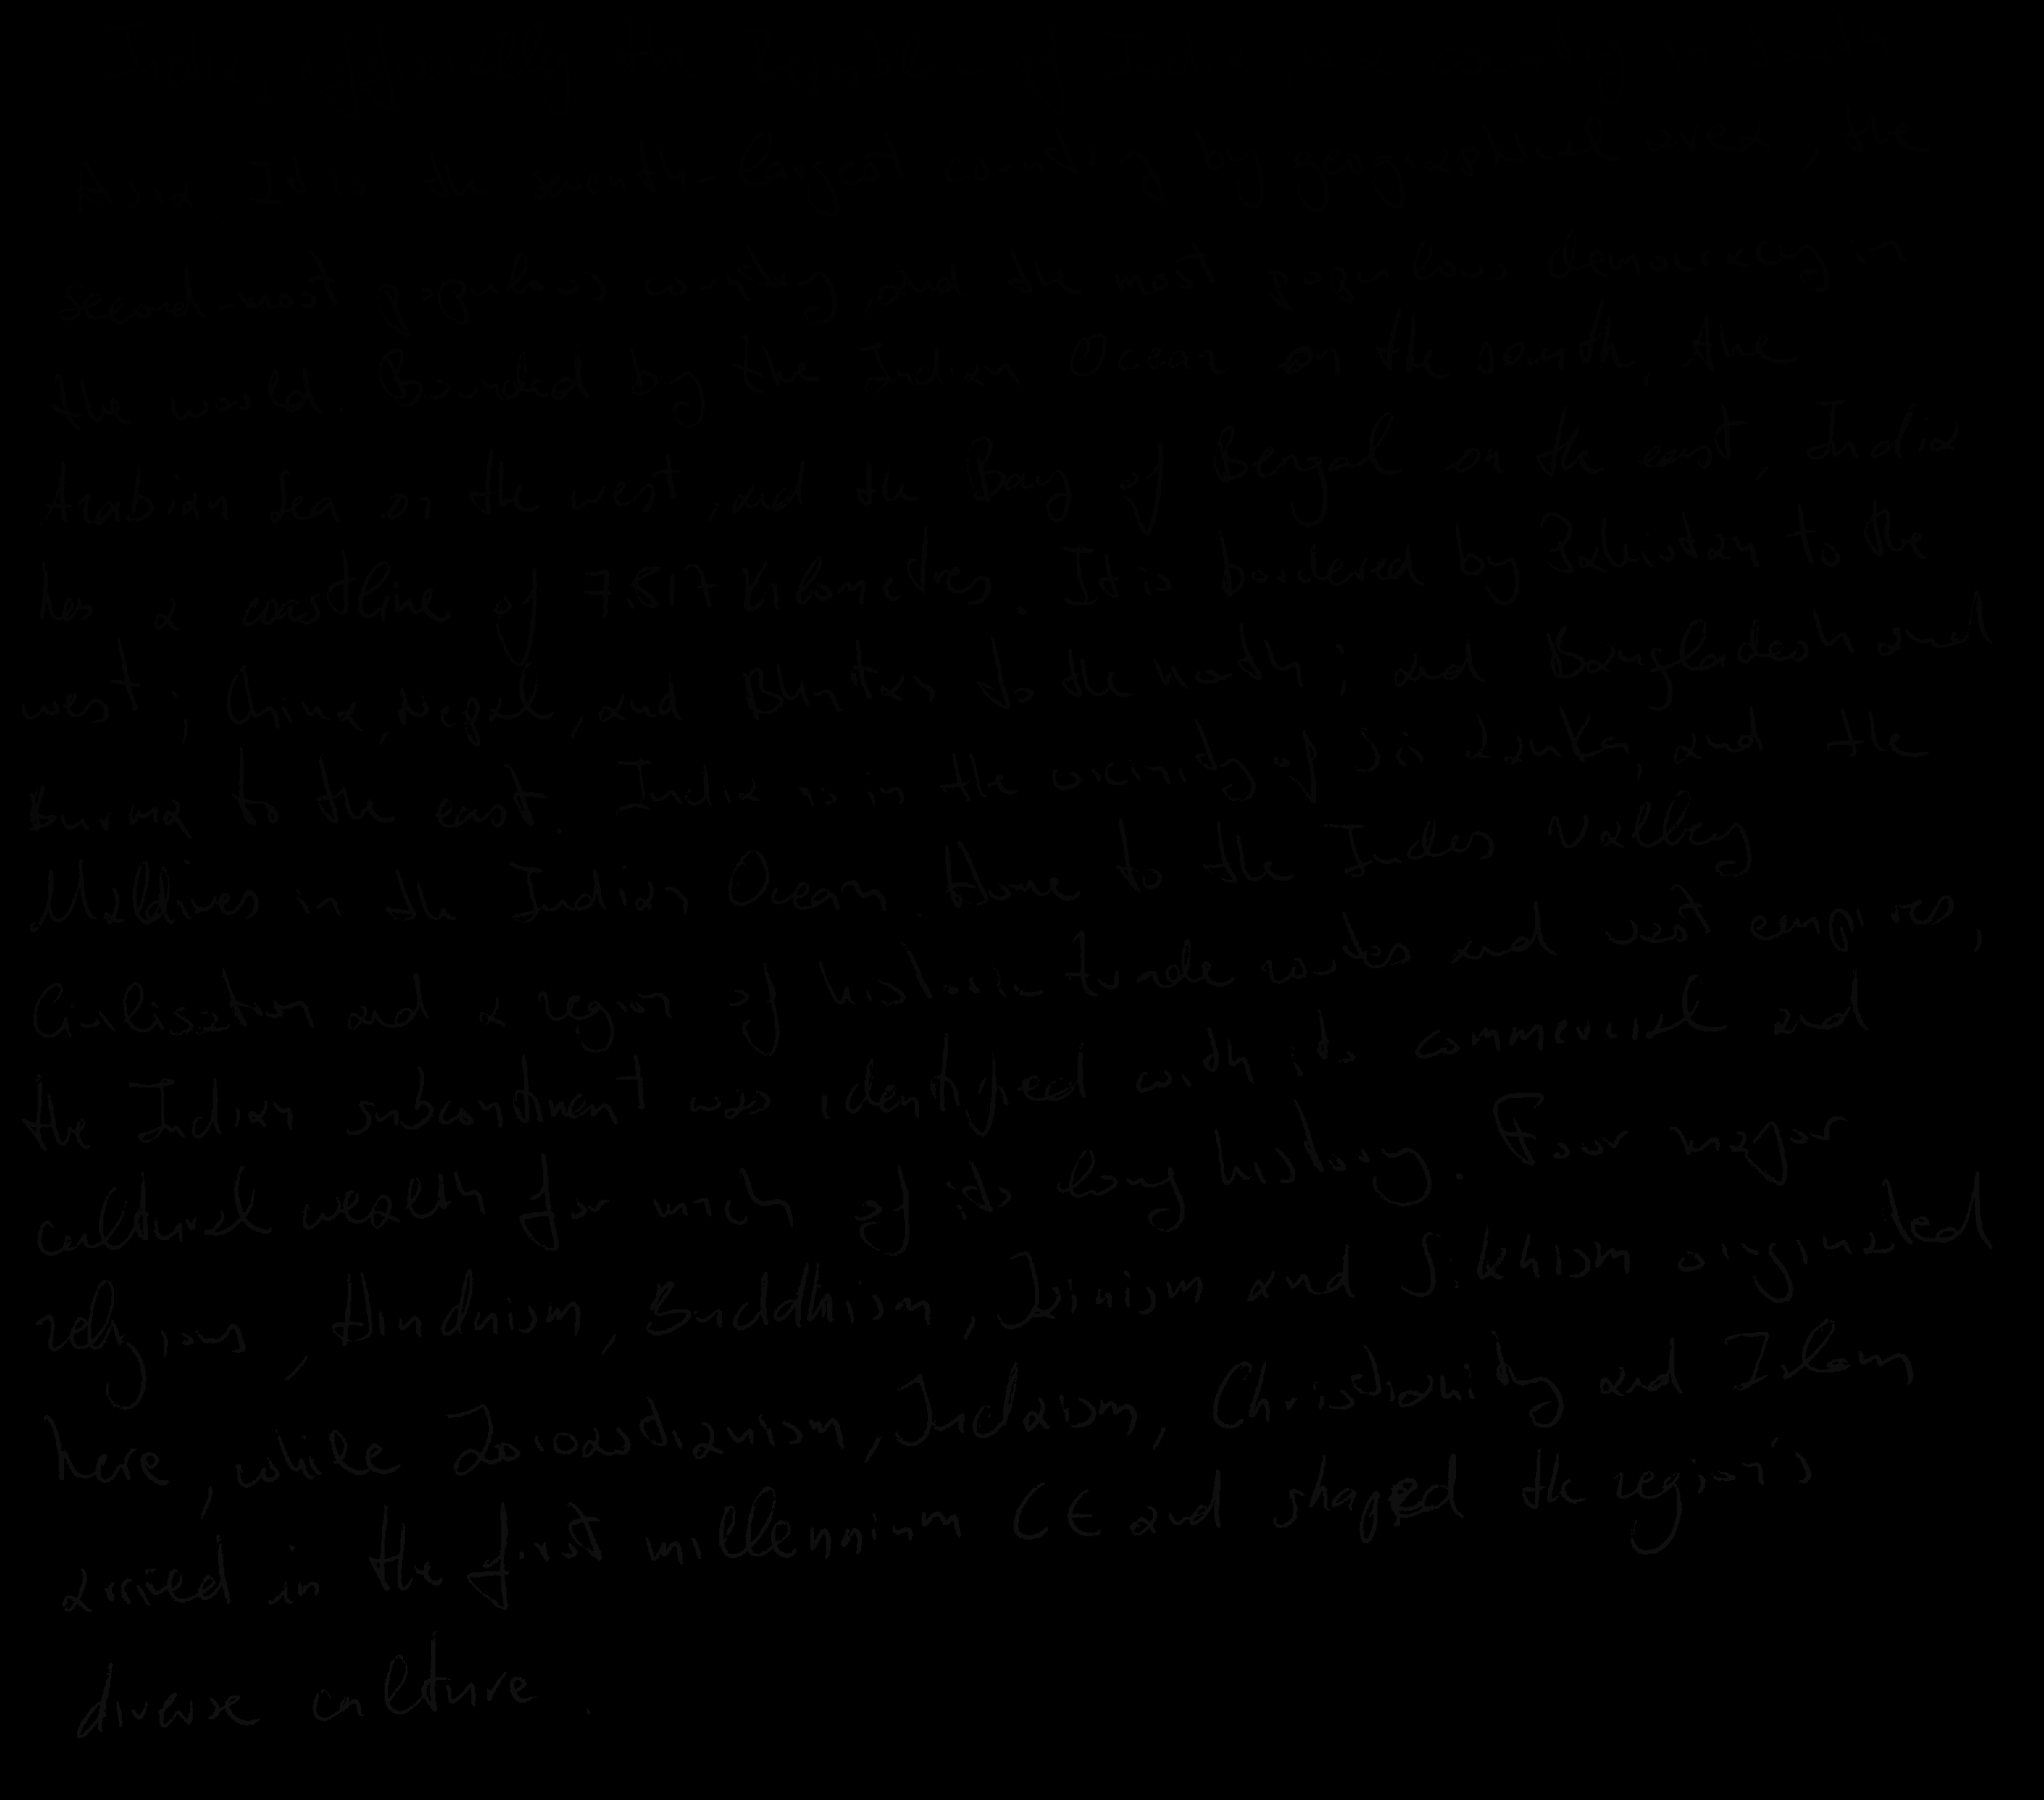 India, officially the Republic of India, is a country in South
Asia. It is the seventh-largest country by geographical area, the
second-most populous country, and the most populous democracy in
the world. Bounded by the Indian Ocean on the south, the
Arabian Sea on the west, and the Bay of Bengal on the east, India
has a coastline of 7.517 Kilometres. It is bordered by Pakistan to the
west; China, Nepal, and Bhutan to the north; and Bangladesh and
Burma to the east. India is in the vicinity of Sri Lanka, and the
Maldives in the Indian Ocean. Home to the Indus Valley
Civilisation and a region of historic trade routes and vast empires,
the Indian subcontinent was identified with its commercial and
cultural wealth for much of its long history. Four major
religions, Hinduism, Buddhism, Jainism and Sikhism originated
here, while Zoroastrianism, Judaism, Christianity and Islam
arrived in the first millennium CE and shaped the region's
diverse culture.